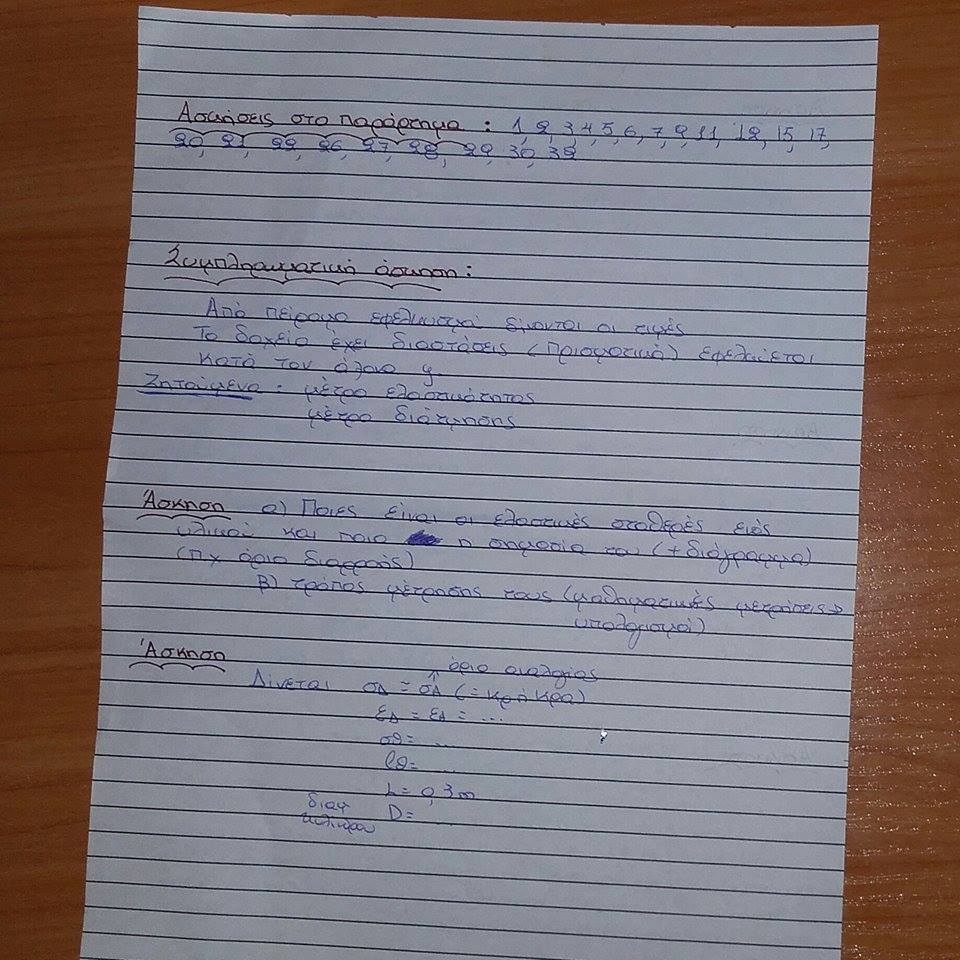 Ασκήσεις στο παράρτημα : 1, 2, 3, 4, 5, 6, 7, 9, 11, 12, 15, 17,
20, 21, 22, 26, 27, 28, 29, 30, 32
Συμπληρωματική άσκηση :
Από πείραμα εφελκυσμού δίνονται οι τιμές
Το δοχείο έχει διαστάσεις (πρισματικό) εφελκύεται
κατά τον άξονα y.
Ζητούμενα : μέτρο ελαστικότητος
μέτρο διάτμησης
Άσκηση α) Ποιες είναι οι ελαστικές σταθερές ενός
υλικού και ποια η σημασία του (+ διάγραμμα)
(πχ όριο διαρροής)
β) τρόπος μέτρησης τους (μαθηματικές μετρήσεις →
υπολογισμοί)
Άσκηση
όριο αναλογίας
Δίνεται σΔ = σΑ
εΔ = εΑ = ...
σθ = ...
lθ = ...
L = 0,3m
διαμ
κυλίνδρου D = ...